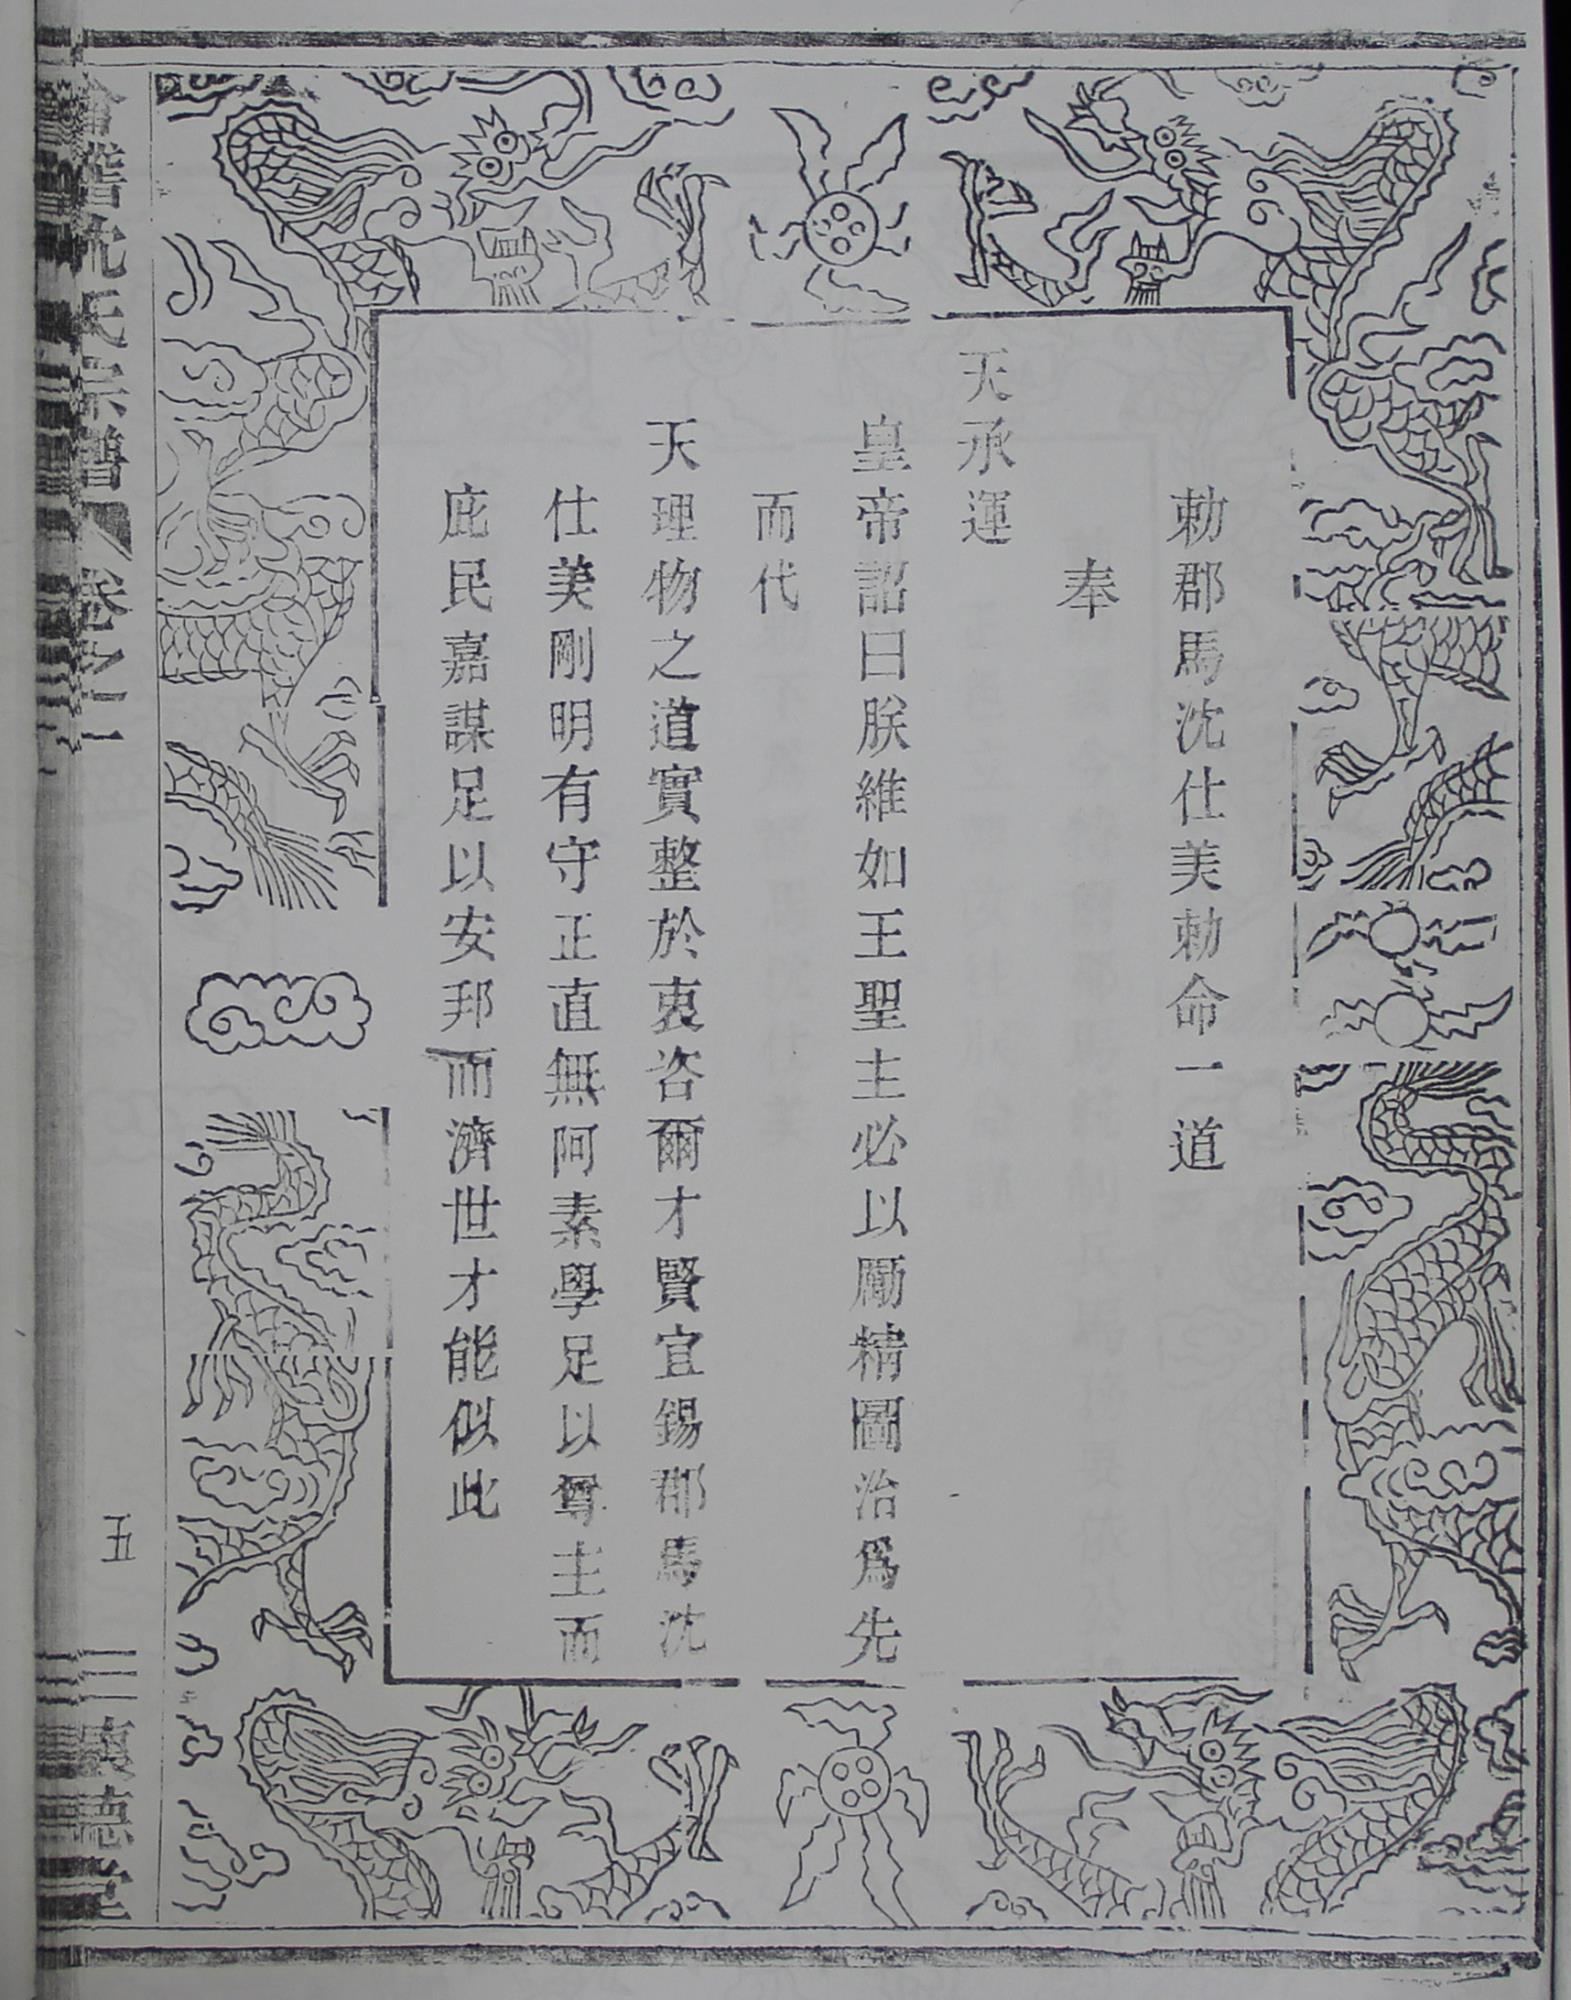 勅郡馬沈仕美勅命一道
奉
天承運
皇帝詔曰朕維如王聖主必以勵精圖治爲先
而代
天理物之道實整於衷咨爾才賢宜錫郡馬沈
仕美剛明有守正直無阿素學足以尊主而
庇民嘉謀足以安邦而濟世才能似此
沈氏宗譜 卷之
五
德堂